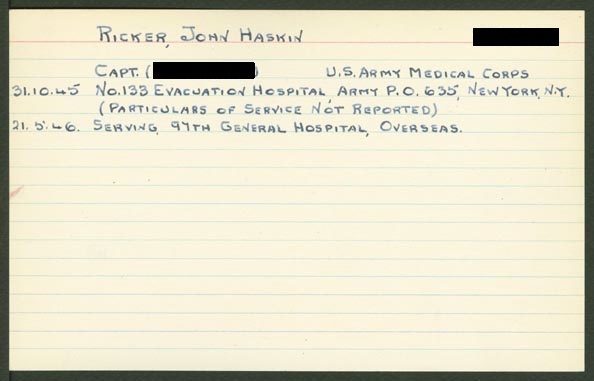 RICKER, JOHN HASKIN
CAPT. ( ) U.S. ARMY MEDICAL CORPS
31.10.45 No. 133 EVACUATION HOSPITAL, ARMY P.O. 635, NEW YORK, N.Y.
(PARTICULARS OF SERVICE NOT REPORTED)
21.5.46. SERVING, 97TH GENERAL HOSPITAL, OVERSEAS.